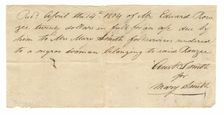 Rec'd April the 14th 1804 of Mr Edward Rou-
zee, twenty dollars in full for an a/c due by
him to Mrs Mary Smith for services rendered
to a negroe woman belonging to said Rouzee
Smith
for
Mary Smith